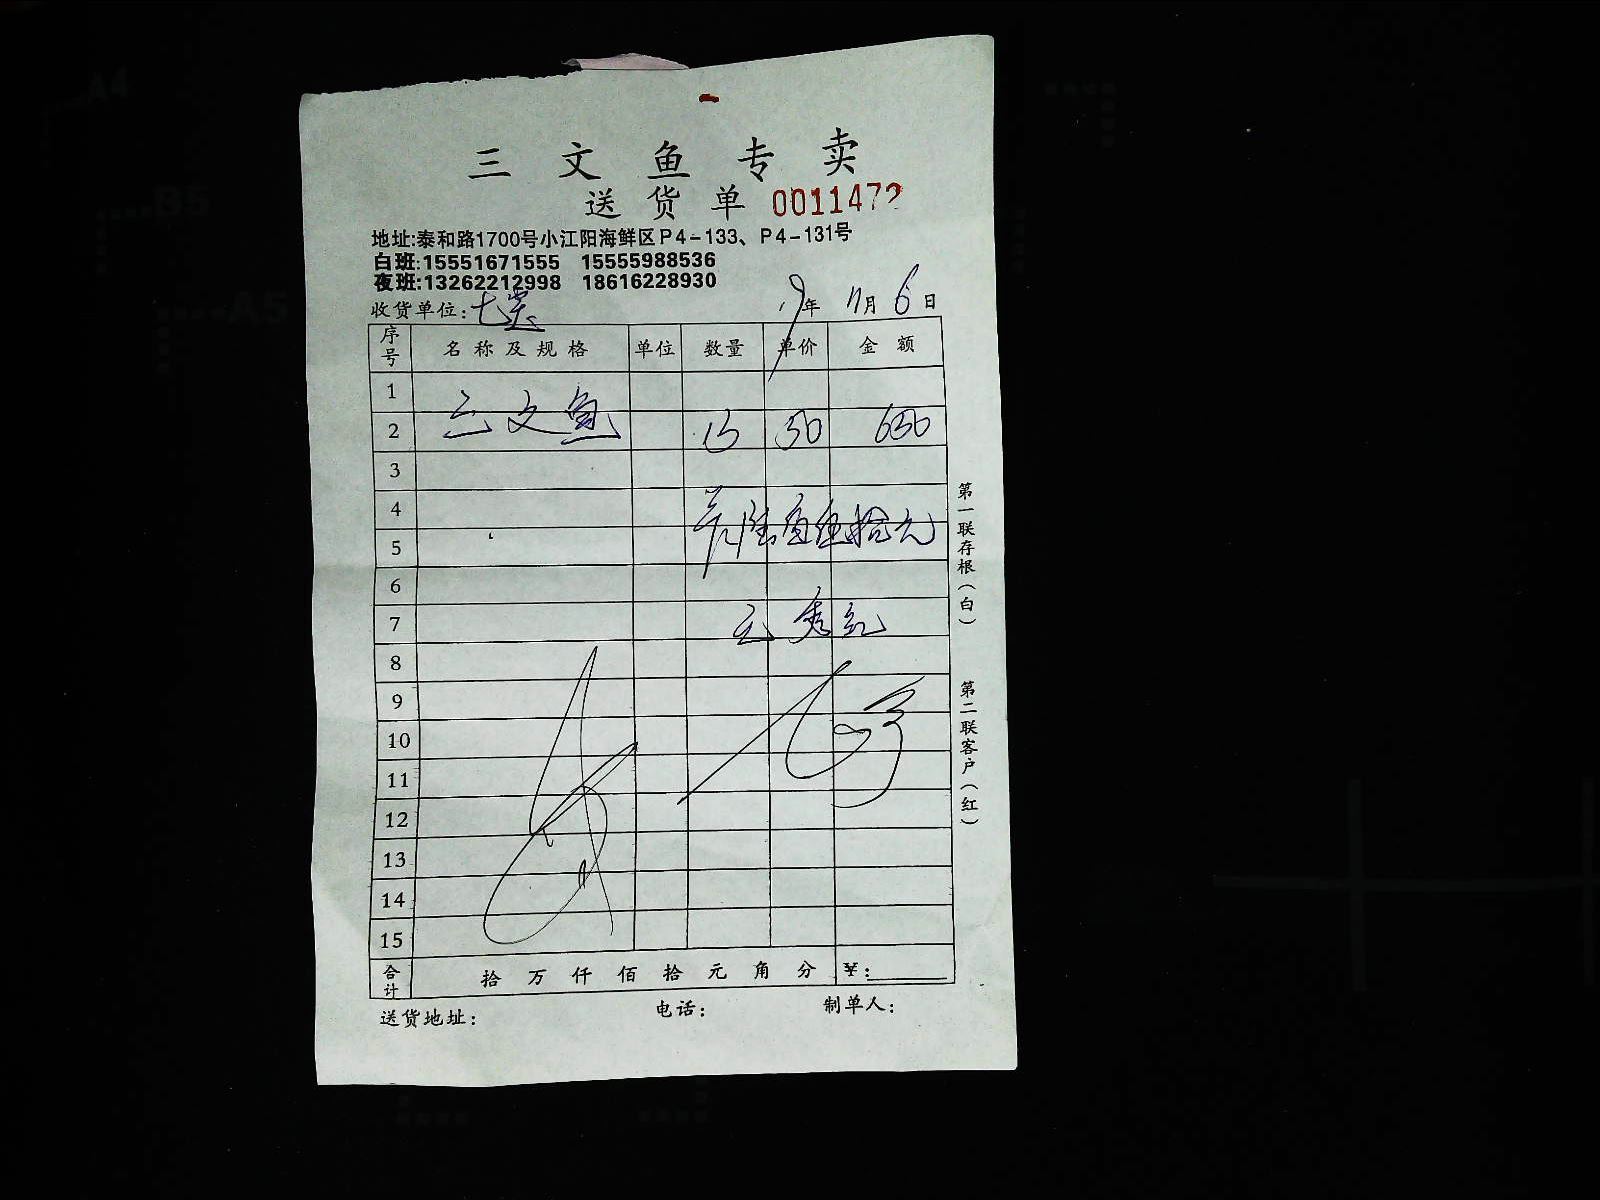 三文鱼专卖
送货单 0011472
地址:泰和路1700号小江阳海鲜区P4-133、P4-131号
白班:15551671555 15555988536
夜班:13262212998 18616228930
收货单位:七 19年11月6日
序号 名称及规格 单位 数量 单价 金额
1
2 三文鱼 13 50 650
3
4
5 陆佰伍拾元
6
7
8
9
10
11
12
13
14
15
合计 拾万仟佰拾元角分 ¥:
送货地址: 电话: 制单人:
第一联存根(白)
第二联客户(红)
A4
B5
A5